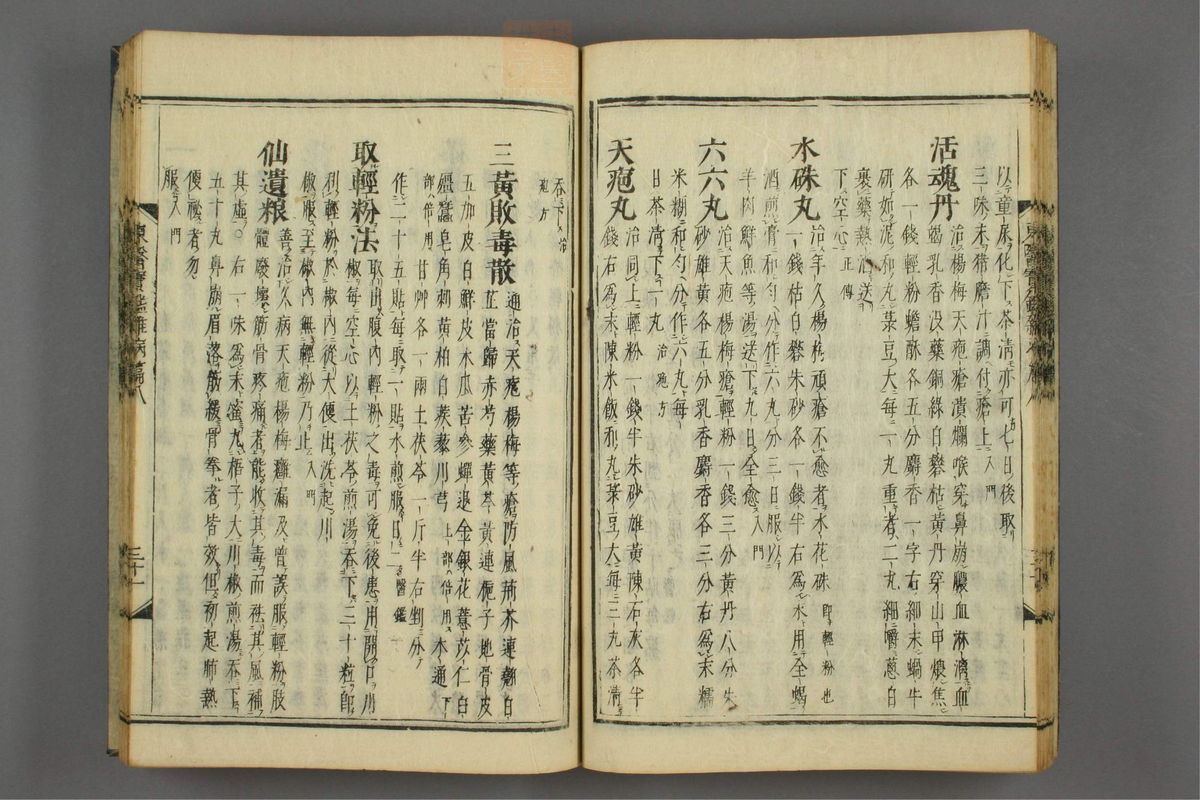 以童尿化下茶淸亦可七日後取
三味未帶膽汁調付瘡上入門
活魂丹治楊梅天疱瘡潰爛喉穿鼻崩膿血淋漓血
竭乳香没藥銅綠白礬枯黃丹穿山甲煨焦
各一錢輕粉蟾酥各五分麝香一字右細末蝸牛
研如泥和丸菉豆大每一丸重者二丸細嚼葱白
裹藥熱酒送下空心正傳
水硃丸治年久楊梅頑瘡不愈者水花硃卽輕粉也
一錢枯白礬朱砂各一錢半右爲末用全蝎
酒煎膏和勻分作六丸分三日服以
羊肉鮮魚等湯送下九日全愈入門
六六丸治天疱楊梅瘡輕粉一錢三分黃丹八分朱
砂雄黃各五分乳香麝香各三分右爲末糯
米糊和勻分作六丸每
日茶淸下一丸治疱方
天疱丸治同上輕粉一錢半朱砂雄黃陳石灰各半
錢右爲末陳米飯和丸菉豆大每三丸茶淸
吞下治疱方
三黃敗毒散通治天疱楊梅等瘡防風荊芥連翹白
芷當歸赤芍藥黃芩黃連梔子地骨皮
五加皮白鮮皮木瓜苦參蟬退金銀花薏苡仁白
殭蠶皂角刺黃柏白蒺藜川芎上部倍用木通下
部倍用甘艸各一兩土茯苓一斤半右剉分
作二十五貼每取一貼水煎服日二醫鑑
取輕粉法取出腹內輕粉之毒可免後患用開口川
椒每空心以土茯苓煎湯吞下三十粒卽
利輕粉於椒內從大便出洗起川
椒服至椒內無輕粉乃止入門
仙遺粮善治久病天疱楊梅癰漏及曾誤服輕粉肢
體廢壞筋骨疼痛者能收其毒而祛其風補
其虛右一味爲末蜜丸梧子大川椒煎湯吞下
五十丸鼻崩眉落筋緩骨拳者皆效但初起肺熱
便祕者勿
服入門
東醫寶鑑雜病篇八
三十一